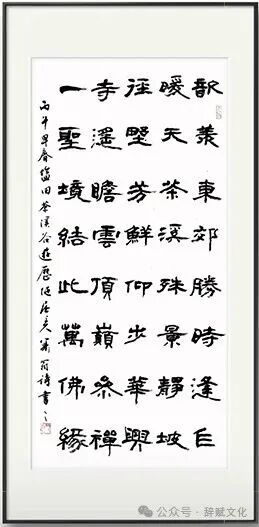 歆羨東郊勝時逢巳
暖天茶溪殊景靜坡
徑野芳鮮仰步華興
寺遙瞻雲頂巔參禪
一聖境結此萬佛緣
丙午早春鹽田茶溪谷遊歷 翁詩書之
公众号·辞赋文化